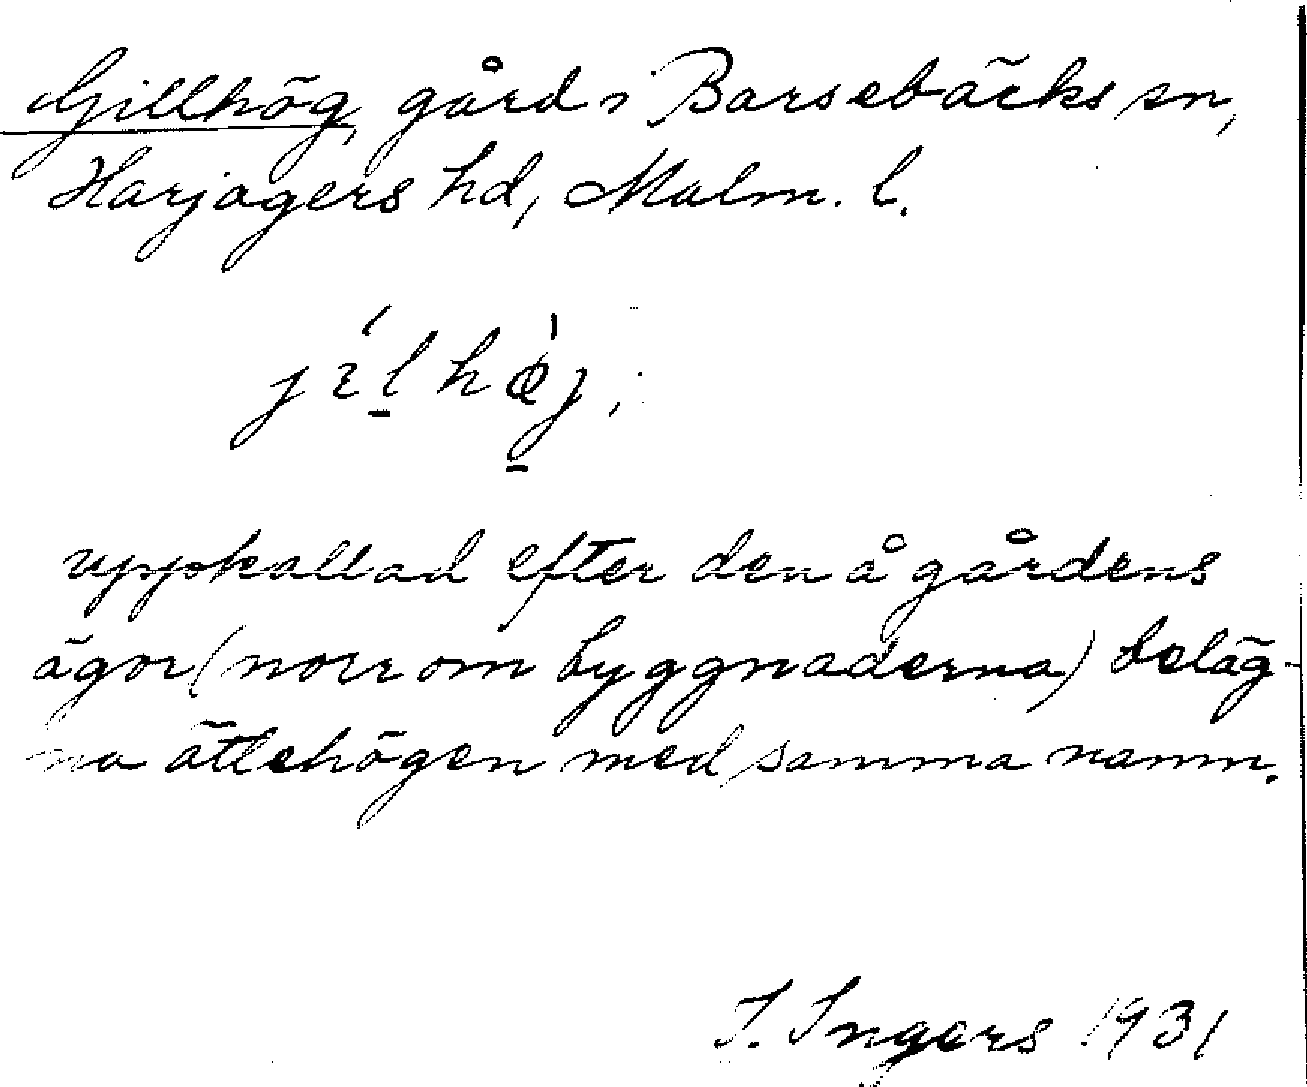 Gillhög, gård i Barsebäcks sn,
Harjagers hd, Malm. l.
jílhø̀j,
uppkallad efter den å gårdens
ägor (norr om byggnaderna) beläg-
na ättehögen med samma namn.
I. Ingers 1931